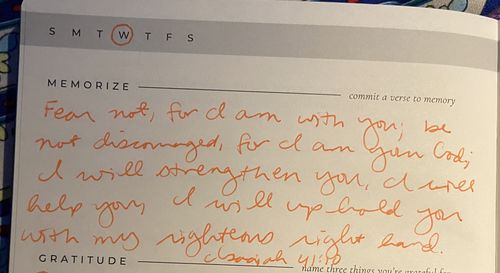 S M T W T F S
MEMORIZE commit a verse to memory
Fear not, for I am with you; be
not discouraged, for I am your God;
I will strengthen you, I will
help you, I will uphold you
with my righteous right hand.
Isaiah 41:10
GRATITUDE name three things you're grateful for